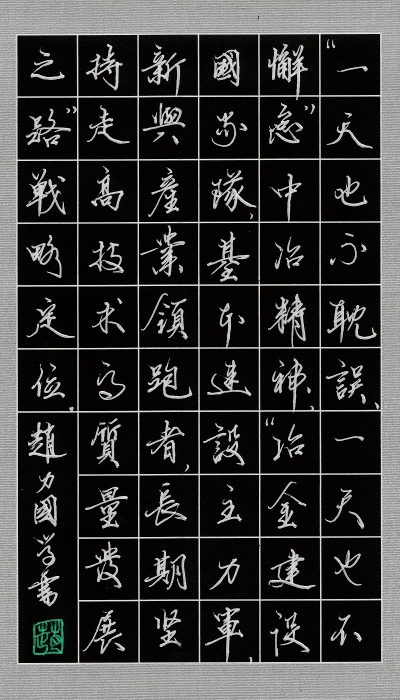 “一天也不耽誤、一天也不
懈怠”中冶精神,“冶金建設
國家隊,基本建設主力軍,
新興產業領跑者,長期坚
持走高技术高質量發展
之路”戰略定位。趙力國学書